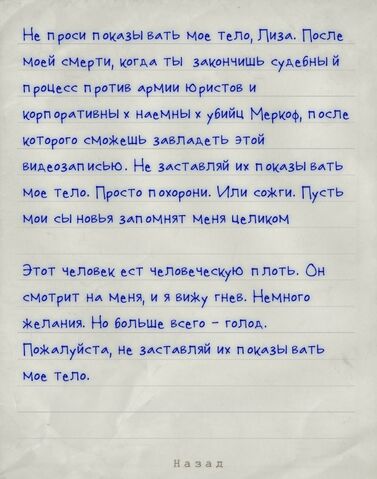 Не проси показывать мое тело, Лиза. После
моей смерти, когда ты закончишь судебный
процесс против армии юристов и
корпоративных наемных убийц Меркоф, после
которого сможешь завладеть этой
видеозаписью. Не заставляй их показывать
мое тело. Просто похорони. Или сожги. Пусть
мои сыновья запомнят меня целиком
Этот человек ест человеческую плоть. Он
смотрит на меня, и я вижу гнев. Немного
желания. Но больше всего – голод.
Пожалуйста, не заставляй их показывать
мое тело.
Назад